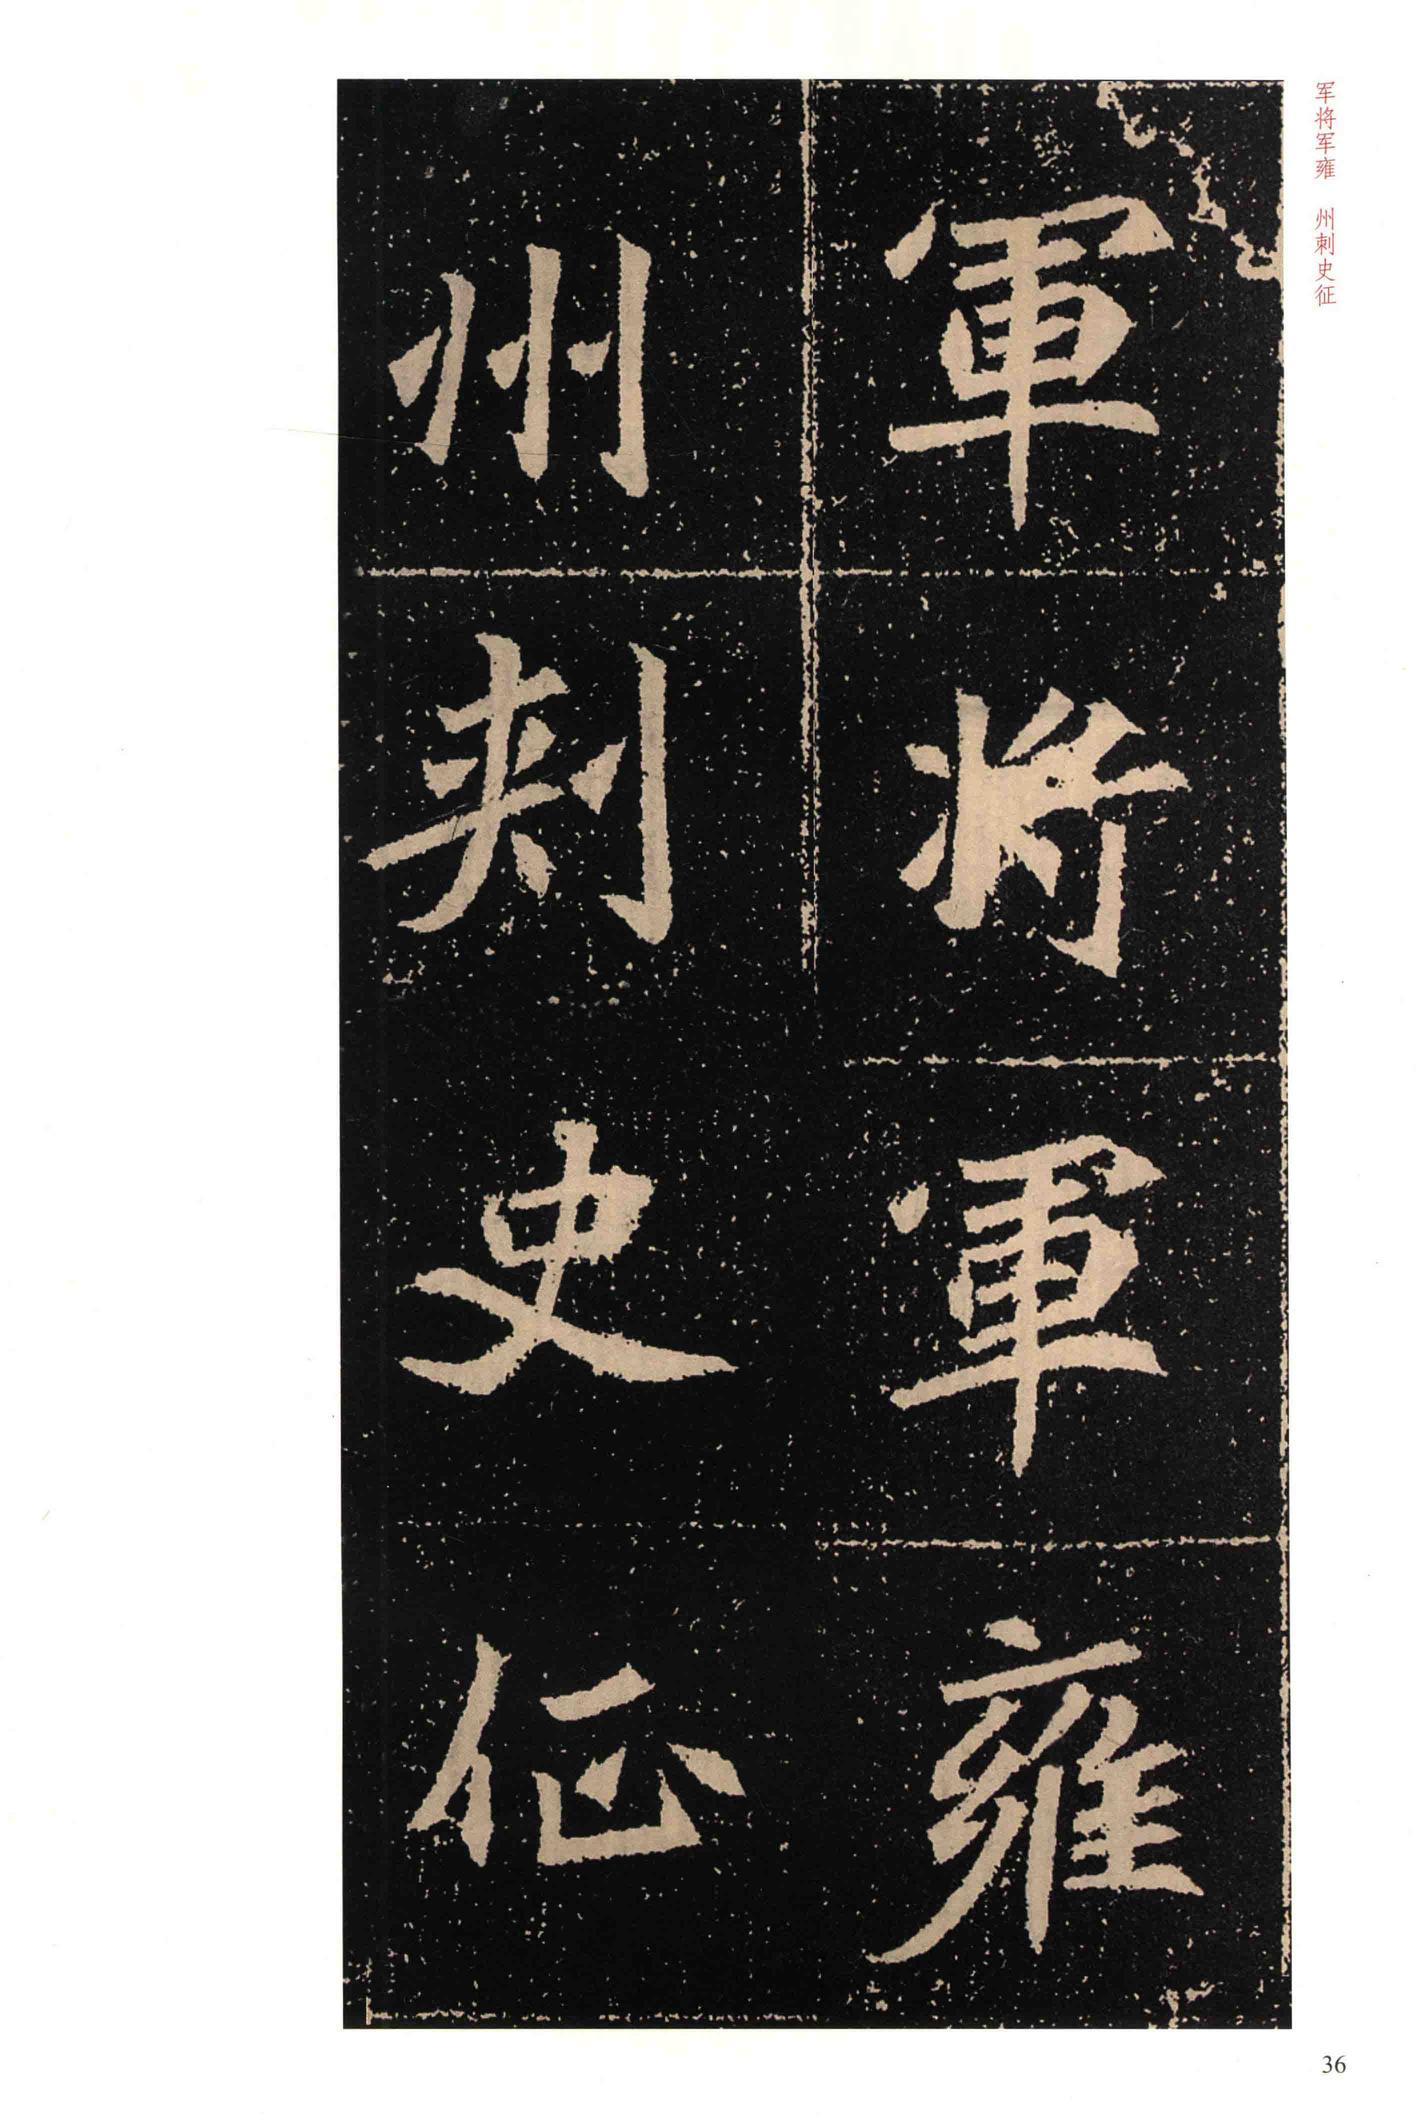 军将军雍　州刺史征
軍將軍雍
州刺史征
36